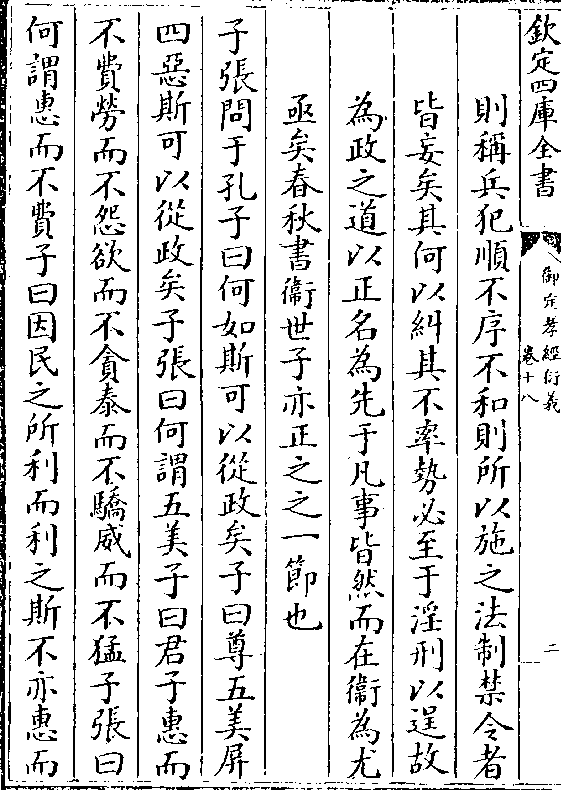 欽定四庫全書
御定孝經衍義
卷十八
二
則稱兵犯順不序不和則所以施之法制禁令者
皆妄矣其何以糾其不率勢必至于淫刑以逞故
為政之道以正名為先于凡事皆然而在衞為尤
亟矣春秋書衞世子亦正之之一節也
子張問于孔子曰何如斯可以從政矣子曰尊五美屏
四惡斯可以從政矣子張曰何謂五美子曰君子惠而
不費勞而不怨欲而不貪泰而不驕威而不猛子張曰
何謂惠而不費子曰因民之所利而利之斯不亦惠而